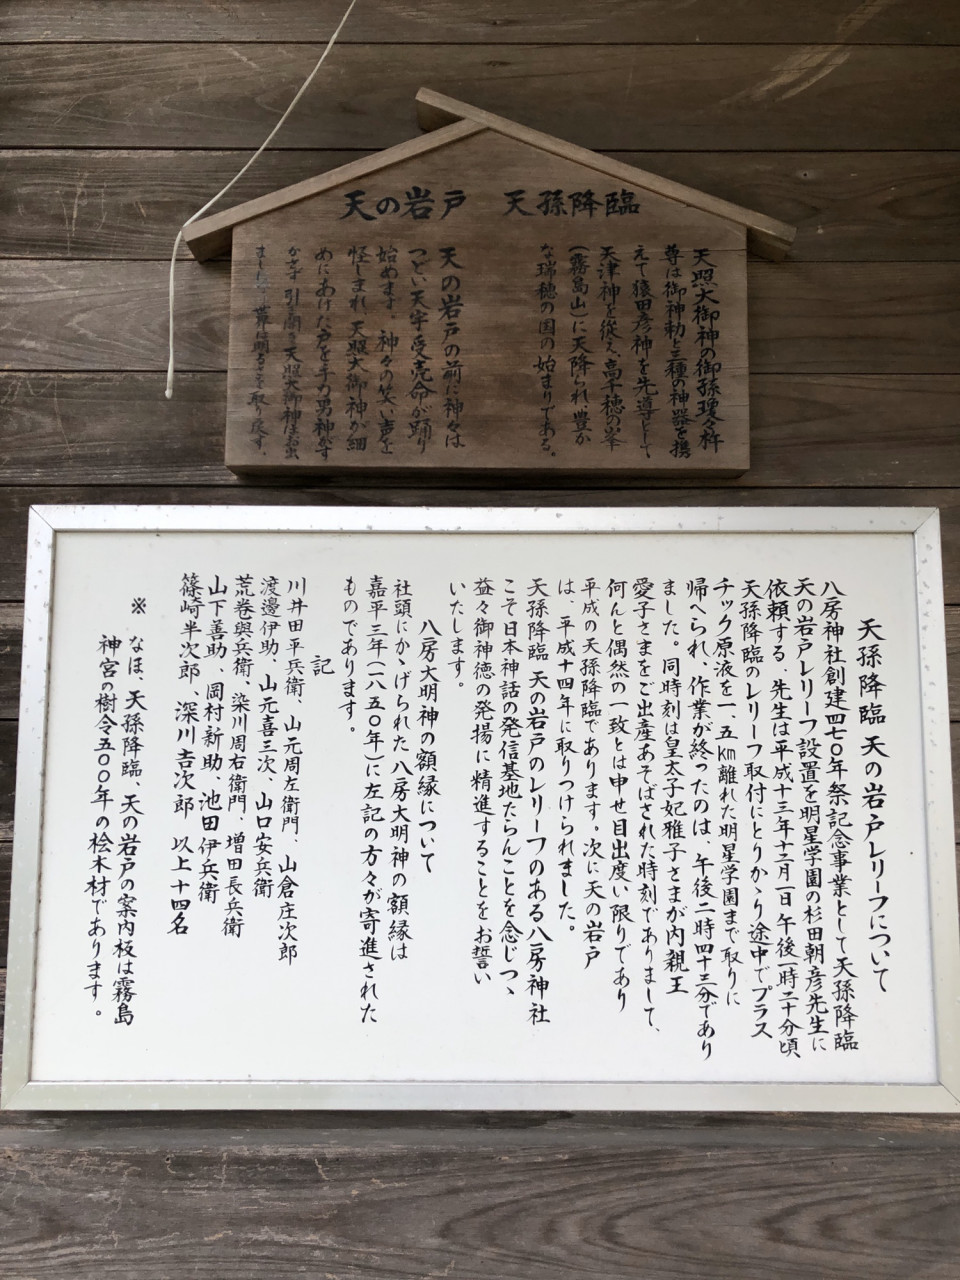 天孫降臨
天照大御神の御孫瓊々杵
尊は御神勅と三種の神器を携
えて猿田彦神を先導として
天津神を従え、高千穂の峯
(霧島山)に天降られ、豊か
な瑞穂の国の始まりである。
天の岩戸
天の岩戸の前に神々は
つどい天宇受売命が踊り
始めます。神々の笑い声を
怪しまれ、天照大御神が細
めにあけた戸を手力男神がす
かさず引き開き天照大御神はお出
ましになり世は明るさを取り戻す。
天孫降臨 天の岩戸レリーフについて
八房神社創建四七〇年祭記念事業として天孫降臨
天の岩戸レリーフ設置を明星学園の杉田朝彦先生に
依頼する。先生は平成十三年十二月一日午後一時二十分頃
天孫降臨のレリーフ取付にとりかゝり途中でプラス
チック原液を一、五㎞離れた明星学園まで取りに
帰へられ、作業が終ったのは、午後二時四十三分であり
ました。同時刻は皇太子妃雅子さまが内親王
愛子さまをご出産あそばされた時刻でありまして、
何んと偶然の一致とは申せ目出度い限りであり
平成の天孫降臨であります。次に天の岩戸
は、平成十四年に取りつけられました。
天孫降臨 天の岩戸のレリーフのある八房神社
こそ日本神話の発信基地たらんことを念じつゝ
益々御神徳の発揚に精進することをお誓い
いたします。
八房大明神の額縁について
社頭にかゝげられた八房大明神の額縁は
嘉平三年(一八五〇年)に左記の方々が寄進された
ものであります。
記
川井田平兵衛、山元周左衛門、山倉庄次郎
渡邉伊助、山元喜三次、山口安兵衛
荒巻與兵衛、染川周右衛門、増田長兵衛
山下善助、岡村新助、池田伊兵衛
篠崎半次郎、深川吉次郎 以上十四名
※ なほ、天孫降臨、天の岩戸の案内板は霧島
神宮の樹令五〇〇年の桧木材であります。